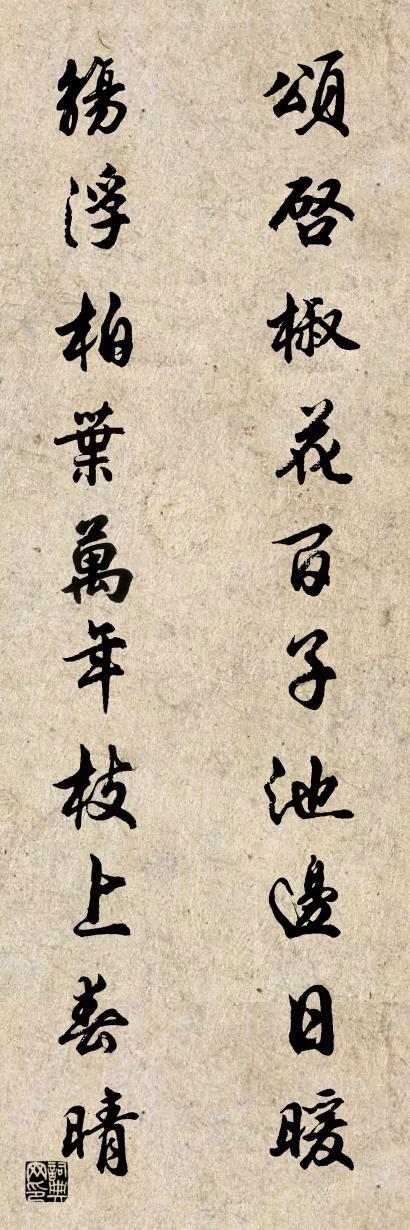 頌啓椒花百子池邊日暖
觴浮柏葉萬年枝上春晴
詞典网印